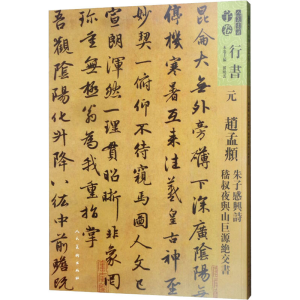 行書
元
趙孟頫
朱子感興詩
嵇叔夜與山巨源絕交書
昆侖大無外旁礴下深廣陰陽無
停機寒暑互來往皇古神聖
妙契一俯仰不待窺馬圖人文已
宣朗渾然一理貫昭晰非象罔
珍重無極翁為我重指掌
吾觀陰陽化升降八紘中前瞻既